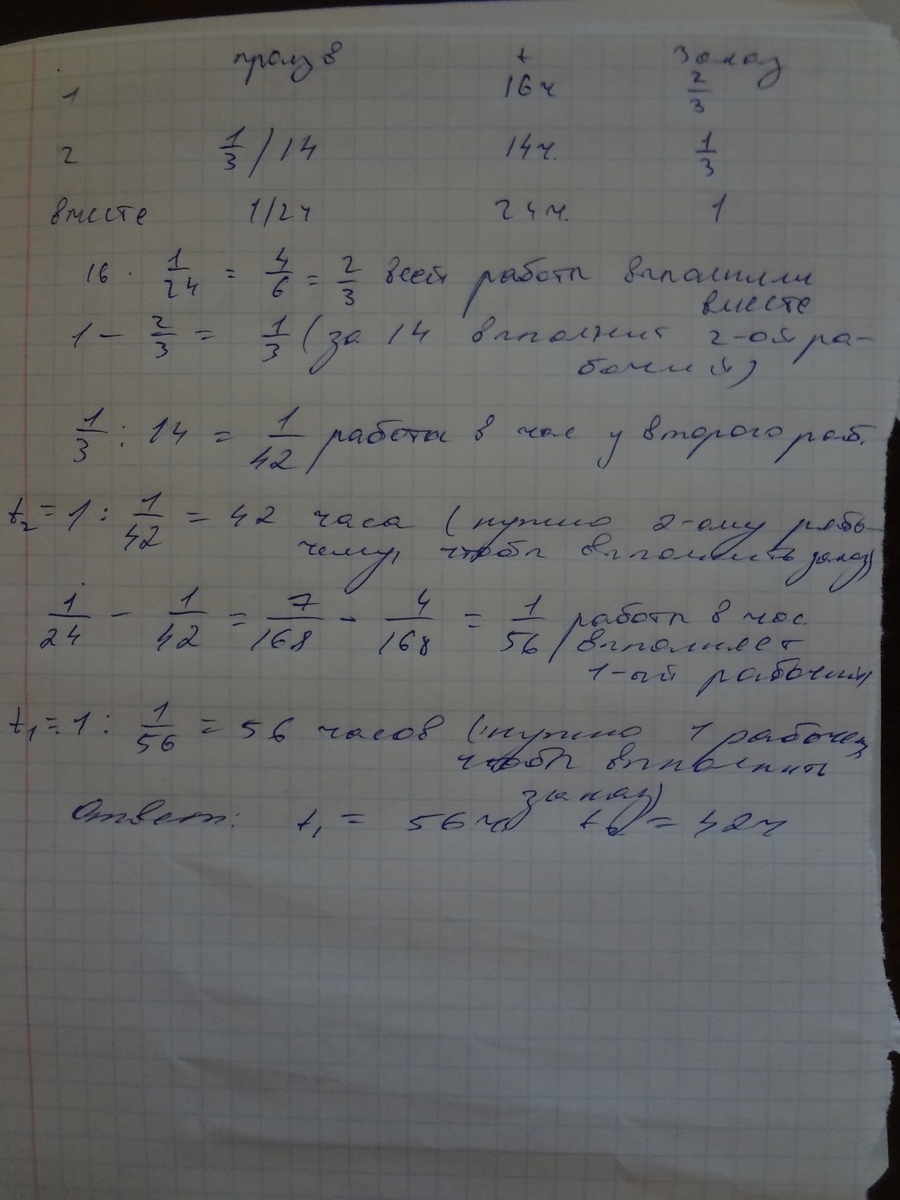 произв t заказ
1 16ч 2/3
2 1/3 / 14 14ч. 1/3
вместе 1/24 24ч. 1
16 · 1/24 = 4/6 = 2/3 всей работы выполнили
вместе
1 - 2/3 = 1/3 (за 14 выполнит 2-ой ра-
бочий)
1/3 : 14 = 1/42 работы в час у второго раб.
t₂ = 1 : 1/42 = 42 часа (нужно 2-ому рабо-
чему, чтобы выполнить заказ)
1/24 - 1/42 = 7/168 - 4/168 = 1/56 работы в час
выполняет
1-ый рабочий
t₁ = 1 : 1/56 = 56 часов (нужно 1 рабочему
чтобы выполнить
заказ)
Ответ: t₁ = 56ч, t₂ = 42ч